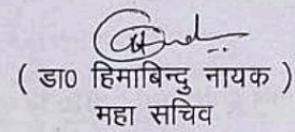 ( डा० हिमाबिन्दु नायक )
महा सचिव